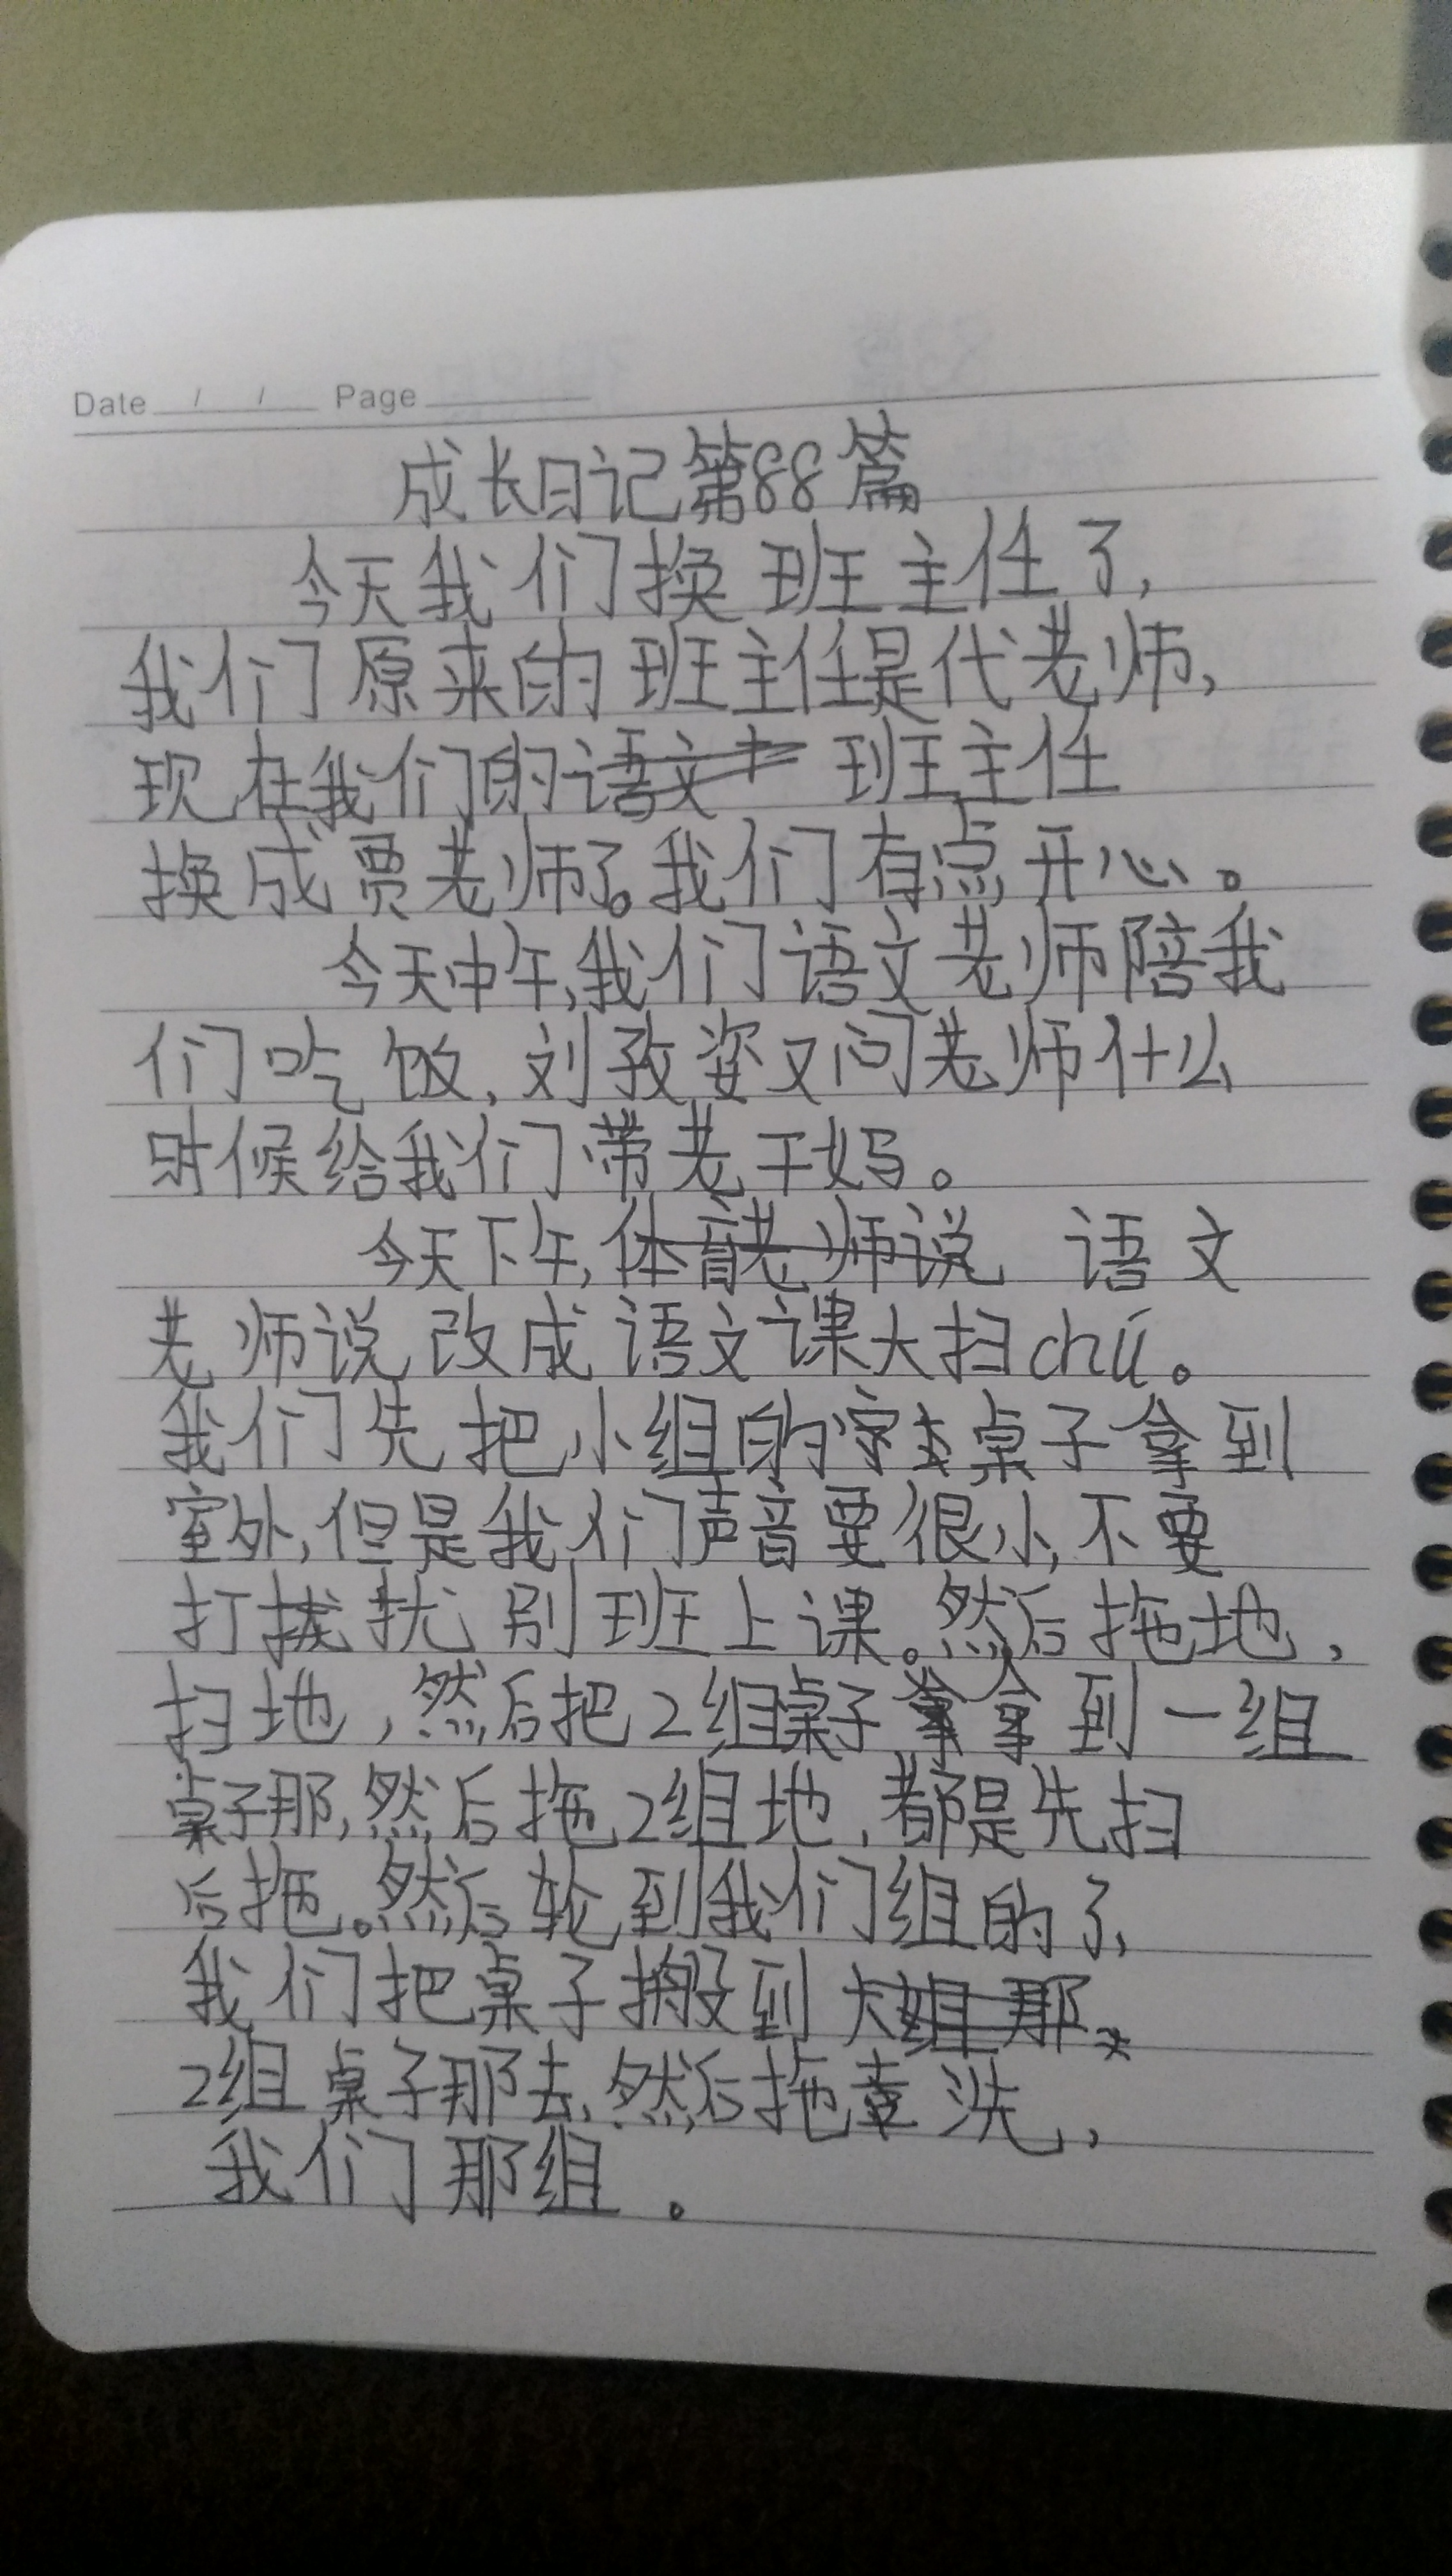 Date / / Page
成长日记第88篇
今天我们换班主任了,
我们原来的班主任是代老师,
现在我们的语文 班主任
换成贾老师了。我们有点开心。
今天中午,我们语文老师陪我
们吃饭,刘孜姿又问老师什么
时候给我们带老干妈。
今天下午,体育老师说 语文
老师说改成语文课大扫chú。
我们先把小组的桌子拿到
室外,但是我们声音要很小,不要
打扰别班上课。然后拖地,
扫地,然后把2组桌子拿拿到一组
桌子那,然后拖2组地,都是先扫
后拖。然后轮到我们组的了,
我们把桌子搬到大组那
2组桌子那去,然后拖洗,
我们那组。